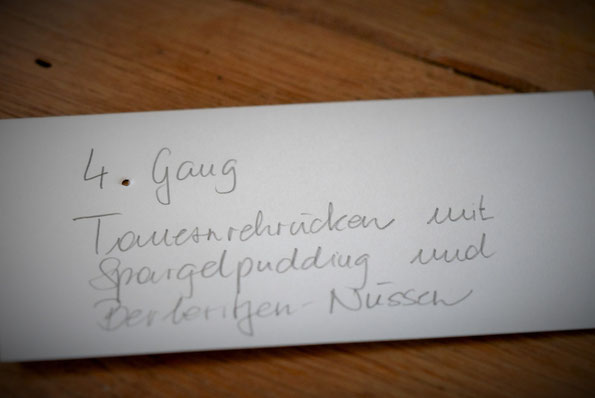 4. Gang
Tauernrehrücken mit
Spargelpudding und
Berberitzen-Nüssen